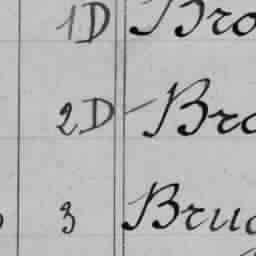 1D Bro
2D - Bro
3 Brug